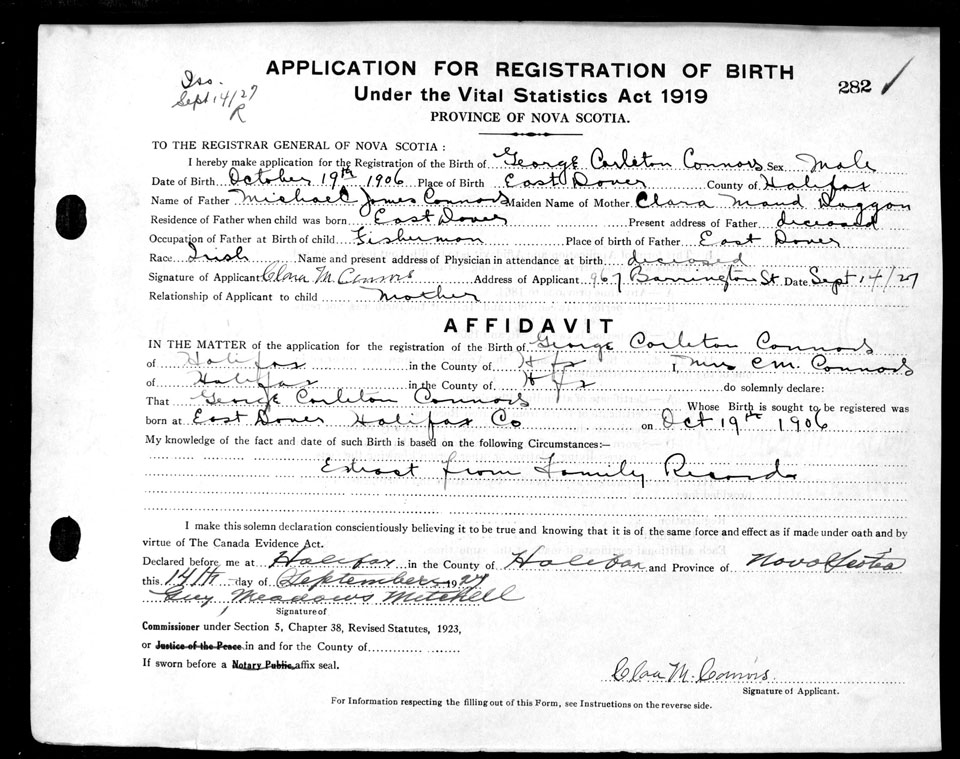 APPLICATION FOR REGISTRATION OF BIRTH
Iss.
Sept 14/27
R
282 ✓
Under the Vital Statistics Act 1919
PROVINCE OF NOVA SCOTIA.
TO THE REGISTRAR GENERAL OF NOVA SCOTIA:
I hereby make application for the Registration of the Birth of George Carleton Connors Sex Male
Date of Birth October 19th 1906 Place of Birth East Dover County of Halifax
Name of Father Michael James Connors Maiden Name of Mother Clara Maud Duggan
Residence of Father when child was born East Dover Present address of Father deceased
Occupation of Father at Birth of child Fisherman Place of birth of Father East Dover
Race Irish Name and present address of Physician in attendance at birth deceased
Signature of Applicant Clara M. Connors Address of Applicant 967 Barrington St Date Sept 14/27
Relationship of Applicant to child Mother
AFFIDAVIT
IN THE MATTER of the application for the registration of the Birth of George Carleton Connors
of Halifax in the County of Hfx I, Mrs C.M. Connors
of Halifax in the County of Hfx do solemnly declare:
That George Carleton Connors Whose Birth is sought to be registered was
born at East Dover Halifax Co on Oct 19th 1906
My knowledge of the fact and date of such Birth is based on the following Circumstances:—
Extract from Family Records
I make this solemn declaration conscientiously believing it to be true and knowing that it is of the same force and effect as if made under oath and by
virtue of The Canada Evidence Act.
Declared before me at Halifax in the County of Halifax and Province of Nova Scotia
this 14th day of September 1927
Guy Meadows Mitchell
Signature of
Commissioner under Section 5, Chapter 38, Revised Statutes, 1923,
or Justice of the Peace in and for the County of
If sworn before a Notary Public, affix seal.
Clara M. Connors
Signature of Applicant.
For Information respecting the filling out of this Form, see Instructions on the reverse side.